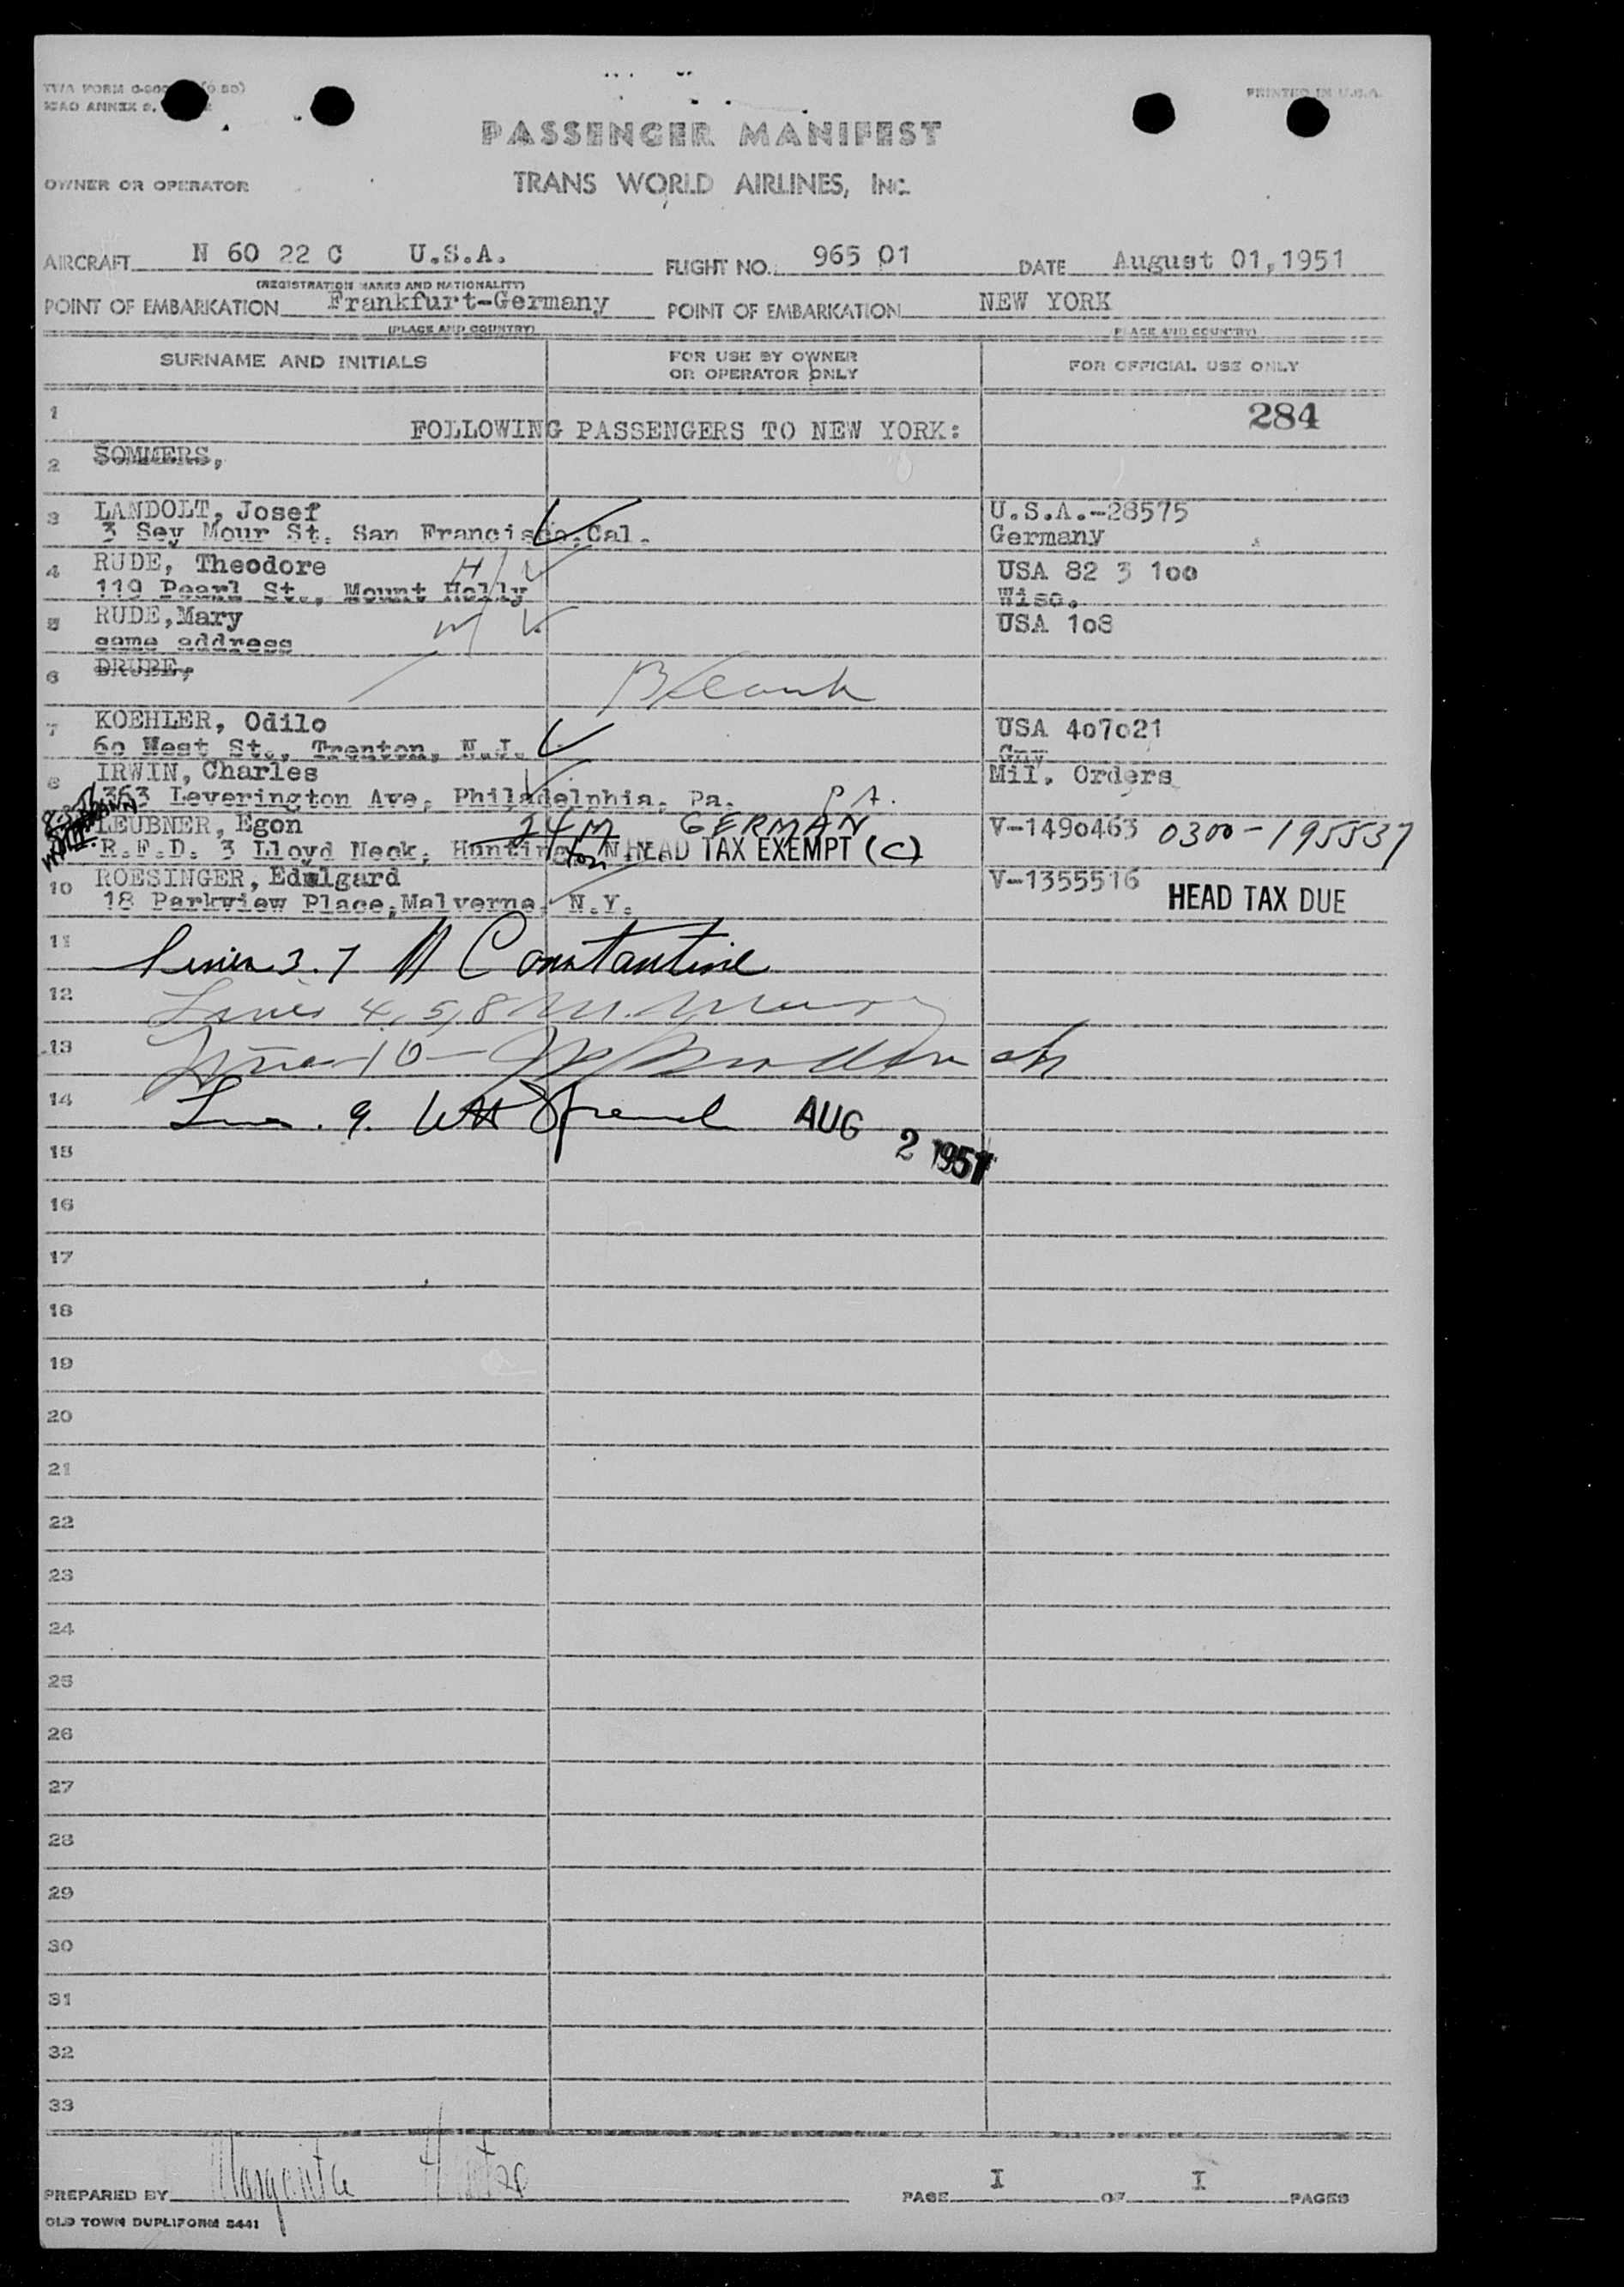 TWA FORM
ICAO ANNEX 9,
PRINTED IN U.S.A.
PASSENGER MANIFEST
OWNER OR OPERATOR TRANS WORLD AIRLINES, INC.
AIRCRAFT N 60 22 C U.S.A. FLIGHT NO. 965 01 DATE August 01,1951
(REGISTRATION MARKS AND NATIONALITY)
POINT OF EMBARKATION Frankfurt-Germany POINT OF EMBARKATION NEW YORK
(PLACE AND COUNTRY) PLACE AND COUNTRY)
SURNAME AND INITIALS FOR USE BY OWNER OR OPERATOR ONLY FOR OFFICIAL USE ONLY
1 284
FOLLOWING PASSENGERS TO NEW YORK:
2 SOMMERS,
3 LANDOLT, Josef U.S.A.-28575
3 Sey Mour St. San Francisco,Cal. Germany
4 RUDE, Theodore H USA 82 3 100
119 Pearl St., Mount Holly Wisc.
5 RUDE,Mary W USA 108
same address
6 DRUBE, Blank
7 KOEHLER, Odilo USA 407021
60 West St., Trenton, N.J. Gny
8 IRWIN, Charles Mil. Orders
363 Leverington Ave, Philadelphia, Pa. P A.
LEUBNER, Egon 24 M GERMAN V-1490463 0300-195537
R.F.D. 3 Lloyd Neck, Huntington N.Y. HEAD TAX EXEMPT (C)
10 ROESINGER, Edelgard V-1355516 HEAD TAX DUE
18 Parkview Place,Malverne, N.Y.
11 Lines 3.7 A Constantine
12 Lines 4,5,8 M.
13 Line 10-
14 Line. 9. AUG 2 1951
15
16
17
18
19
20
21
22
23
24
25
26
27
28
29
30
31
32
33
PREPARED BY Margarita PAGE I OF I PAGES
OLD TOWN DUPLIFORM 8441